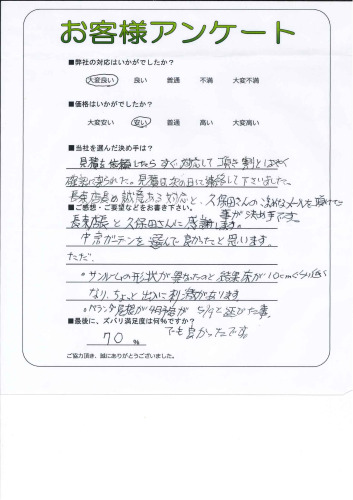 お客様アンケート
■弊社の対応はいかがでしたか？
大変良い 良い 普通 不満 大変不満
■価格はいかがでしたか？
大変安い 安い 普通 高い 大変高い
■当社を選んだ決め手は？
見積を依頼したらすぐ対応して頂き割とはやく
確認に来られた。見積は次の日に連絡して下さいました。
長束店長の誠意ある対応と、久保田さんの メールを頂けた
事が決め手です。
■ご感想・ご要望などをお書き下さい。
長束店長と久保田さんに感謝します。
中京ガーデンを選んで良かったと思います。
ただ
・サンルームの形状が異なったのと 結果床が10cmくらい低く
なり、ちょっと出入に利済があります
・ベランダ屋根が4月予定が 5/1と延びた事。
でも良かったです。
■最後に、ズバリ満足度は何％ですか？
70 %
ご協力頂き、誠にありがとうございました。